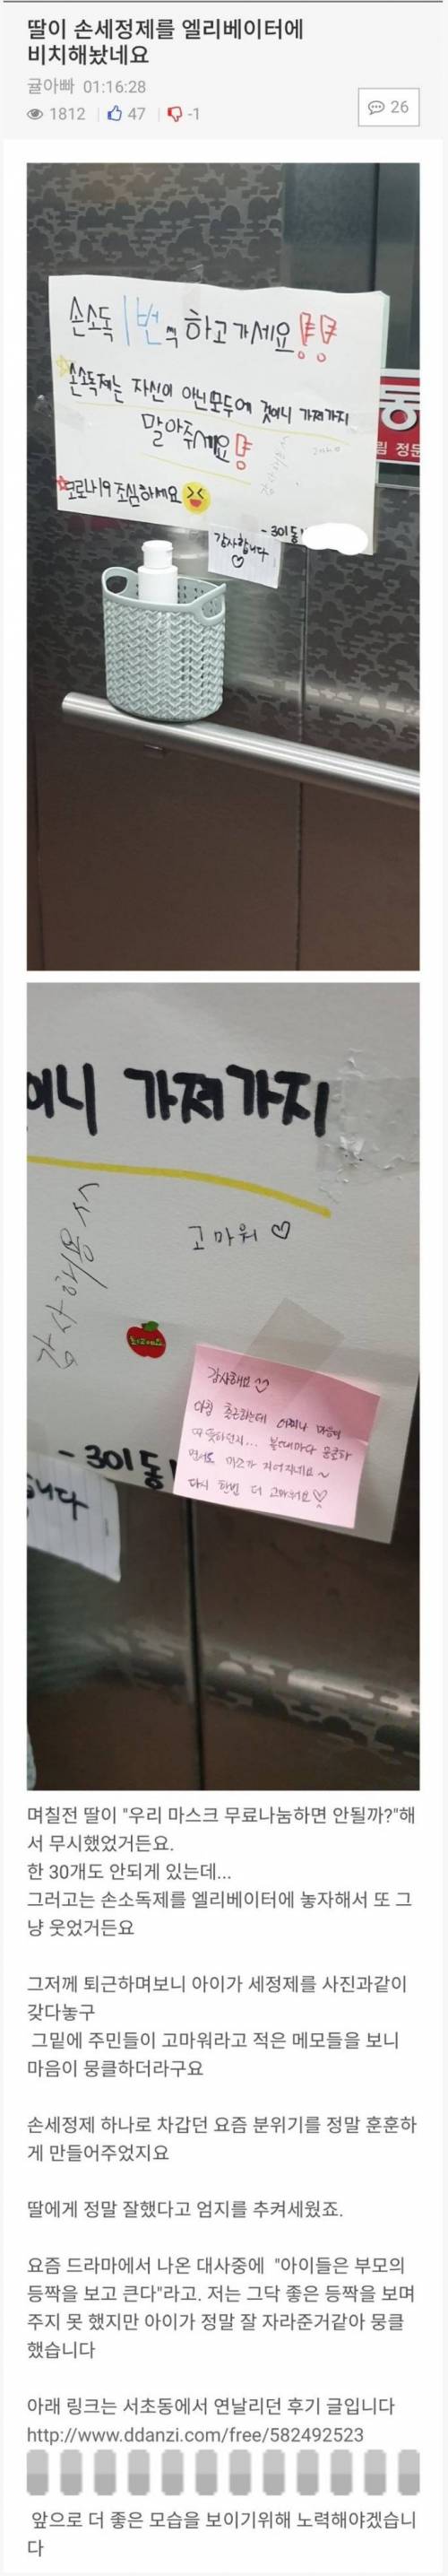 딸이 손세정제를 엘리베이터에
비치해놨네요
귤아빠 01:16:28
1812 47 -1
26
손소독 1번씩 하고가세요!!
손소독제는 자신이 아닌모두에 것이니 가져가지
말아주세요!
코로나19 조심하세요
- 301동
감사합니다
동
림 정문
이니 가져가지
고마워
감사해용
참 잘했어요
- 301동
니다
감사해요
아침 출근하는데 어찌나 마음이
따뜻하던지... 볼때마다 뭉클하
면서도 미소가 지어지네요~
다시 한번 더 고마워요
며칠전 딸이 "우리 마스크 무료나눔하면 안될까?"해
서 무시했었거든요.
한 30개도 안되게 있는데...
그러고는 손소독제를 엘리베이터에 놓자해서 또 그
냥 웃었거든요
그저께 퇴근하며보니 아이가 세정제를 사진과같이
갖다놓구
그밑에 주민들이 고마워라고 적은 메모들을 보니
마음이 뭉클하더라구요
손세정제 하나로 차갑던 요즘 분위기를 정말 훈훈하
게 만들어주었지요
딸에게 정말 잘했다고 엄지를 추켜세웠죠.
요즘 드라마에서 나온 대사중에 "아이들은 부모의
등짝을 보고 큰다"라고. 저는 그닥 좋은 등짝을 보며
주지 못 했지만 아이가 정말 잘 자라준거같아 뭉클
했습니다
아래 링크는 서초동에서 연날리던 후기 글입니다
http://www.ddanzi.com/free/582492523
앞으로 더 좋은 모습을 보이기위해 노력해야겠습니
다